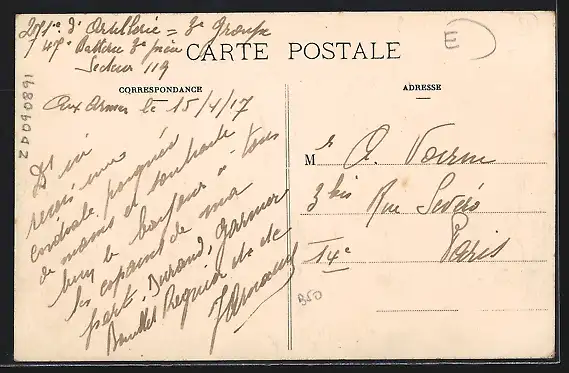 271e d'Artillerie = 3e Groupe
47e Batterie 3e pièce
Secteur 119
CARTE POSTALE
E
CORRESPONDANCE
ADRESSE
Aux Armées le 15/4/17
D'ici
recevez une
cordiale poignée
de mains et souhaite
bien le bonjour à tous
les copains de ma
part, Durand, Garnier
Requier etc etc
M r A. Voirin
3 bis Rue Severo
Paris
14e
B50
ZD090891